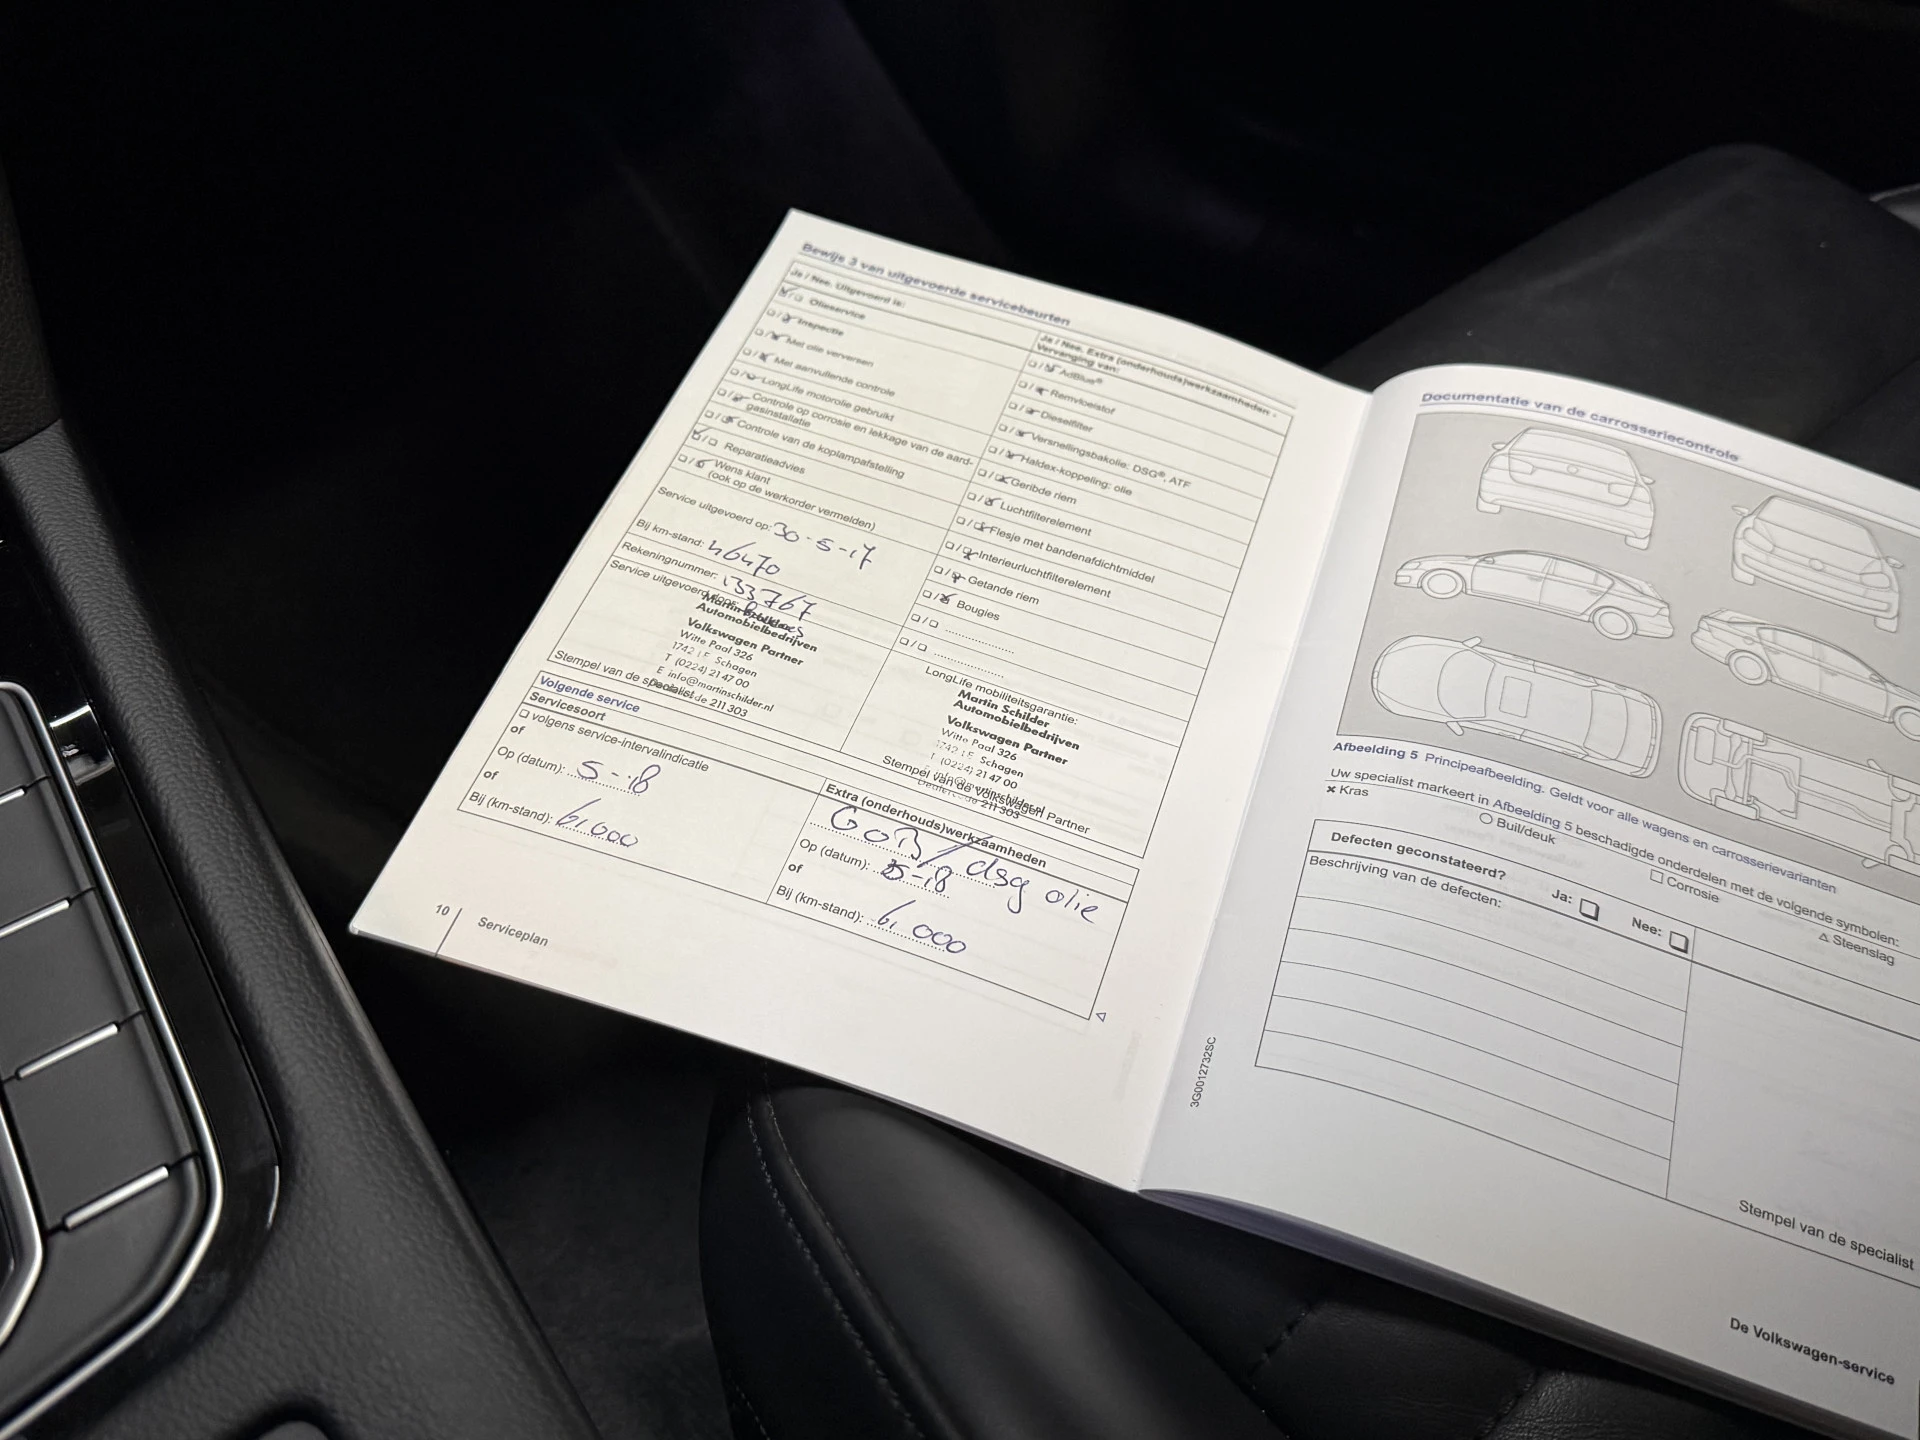 Bewijs 3 van uitgevoerde servicebeurten
Ja / Nee. Uitgevoerd is:
Olieservice
Inspectie
Met olie verversen
Met aanvullende controle
LongLife motorolie gebruikt
Controle op corrosie en lekkage van de aard-
gasinstallatie
Controle van de koplampafstelling
Reparatieadvies
Wens klant
(ook op de werkorder vermelden)
Service uitgevoerd op: 30-5-17
Bij km-stand: 46470
Rekeningnummer: 133767
Service uitgevoerd door:
Automobielbedrijven
Volkswagen Partner
Witte Paal 326
Schagen
T (0224) 21 47 00
E info@martinschilder.nl
211 303
Stempel van de specialist
Ja / Nee. Extra (onderhouds)werkzaamheden -
Vervanging van:
AdBlue®
Remvloeistof
Dieselfilter
Versnellingsbakolie: DSG®, ATF
Haldex-koppeling: olie
Geribde riem
Luchtfilterelement
Flesje met bandenafdichtmiddel
Interieurluchtfilterelement
Getande riem
Bougies
LongLife mobiliteitsgarantie:
Martin Schilder
Automobielbedrijven
Volkswagen Partner
Witte Paal 326
Schagen
T (0224) 21 47 00
info@martinschilder.nl
211 303
Stempel van de Volkswagen Partner
Volgende service
Servicesoort
volgens service-intervalindicatie
of
Op (datum): 5-18
of
Bij (km-stand): 61000
Extra (onderhouds)werkzaamheden
dsg olie
Op (datum): 5-18
of
Bij (km-stand): 61 000
10
Serviceplan
Documentatie van de carrosseriecontrole
Afbeelding 5 Principeafbeelding. Geldt voor alle wagens en carrosserievarianten
Uw specialist markeert in Afbeelding 5 beschadigde onderdelen met de volgende symbolen:
× Kras
Buil/deuk
Corrosie
Steenslag
Defecten geconstateerd?
Ja:
Nee:
Beschrijving van de defecten:
Stempel van de specialist
3G0012732SC
De Volkswagen-service